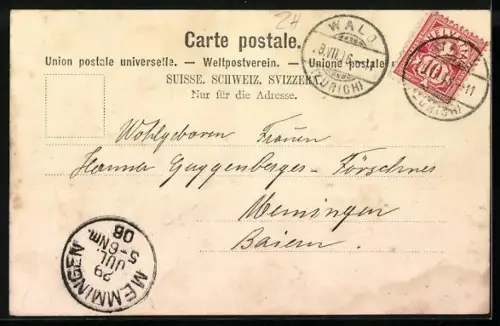 24
Carte postale.
Union postale universelle. — Weltpostverein. — Unione postale
SUISSE. SCHWEIZ. SVIZZERA
Nur für die Adresse.
WALD
(ZÜRICH)
HELVETIA
10
11
(ZÜRICH)
Wohlgeboren Frauen
Hanna Guggenberger-Förschner
Memingen
Baiern.
MEMMINGEN
29
JUL
5-6Nm.
06